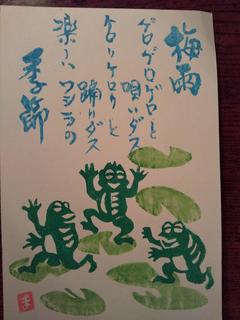 梅雨
ゲロゲロゲロと
唄いダス
ケロリケロリと
踊りダス
楽しいワシラの
季節
ま